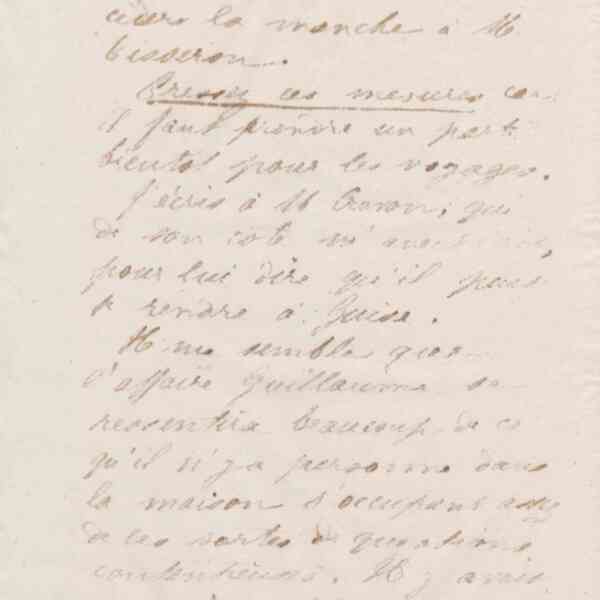 la manche à M
Bisseron.
Pressez ces mesures car
il faut prendre un parti
bientot pour les voyages.
J'écris à M Grebon, qui
de son côté m'avait écrit,
pour lui dire qu'il peut
se rendre à Guise.
Il me semble que
l'affaire Guillaume se
ressentira beaucoup de ce
qu'il n'y a personne dans
la maison s'occupant assez
de ces sortes de questions
contentieuses. Il y avait